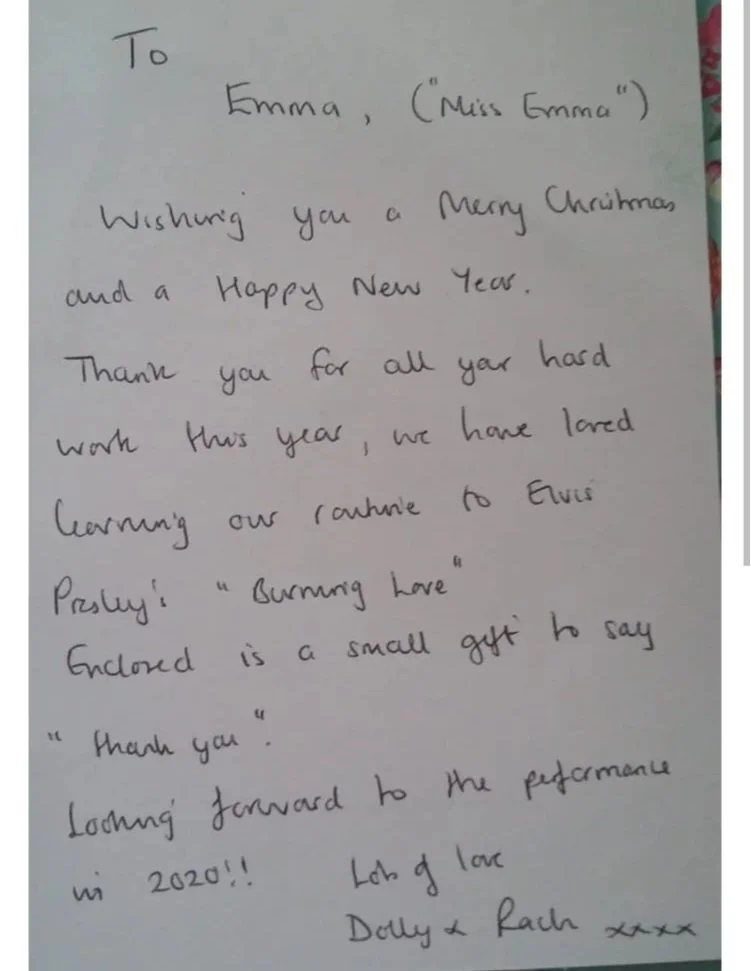 To
Emma, ("Miss Emma")
Wishing you a Merry Christmas
and a Happy New Year.
Thank you for all your hard
work this year, we have loved
learning our routine to Elvis
Presley's "Burning Love"
Enclosed is a small gift to say
"thank you".
Looking forward to the performance
in 2020!! Lots of love
Dolly & Rach xxxx